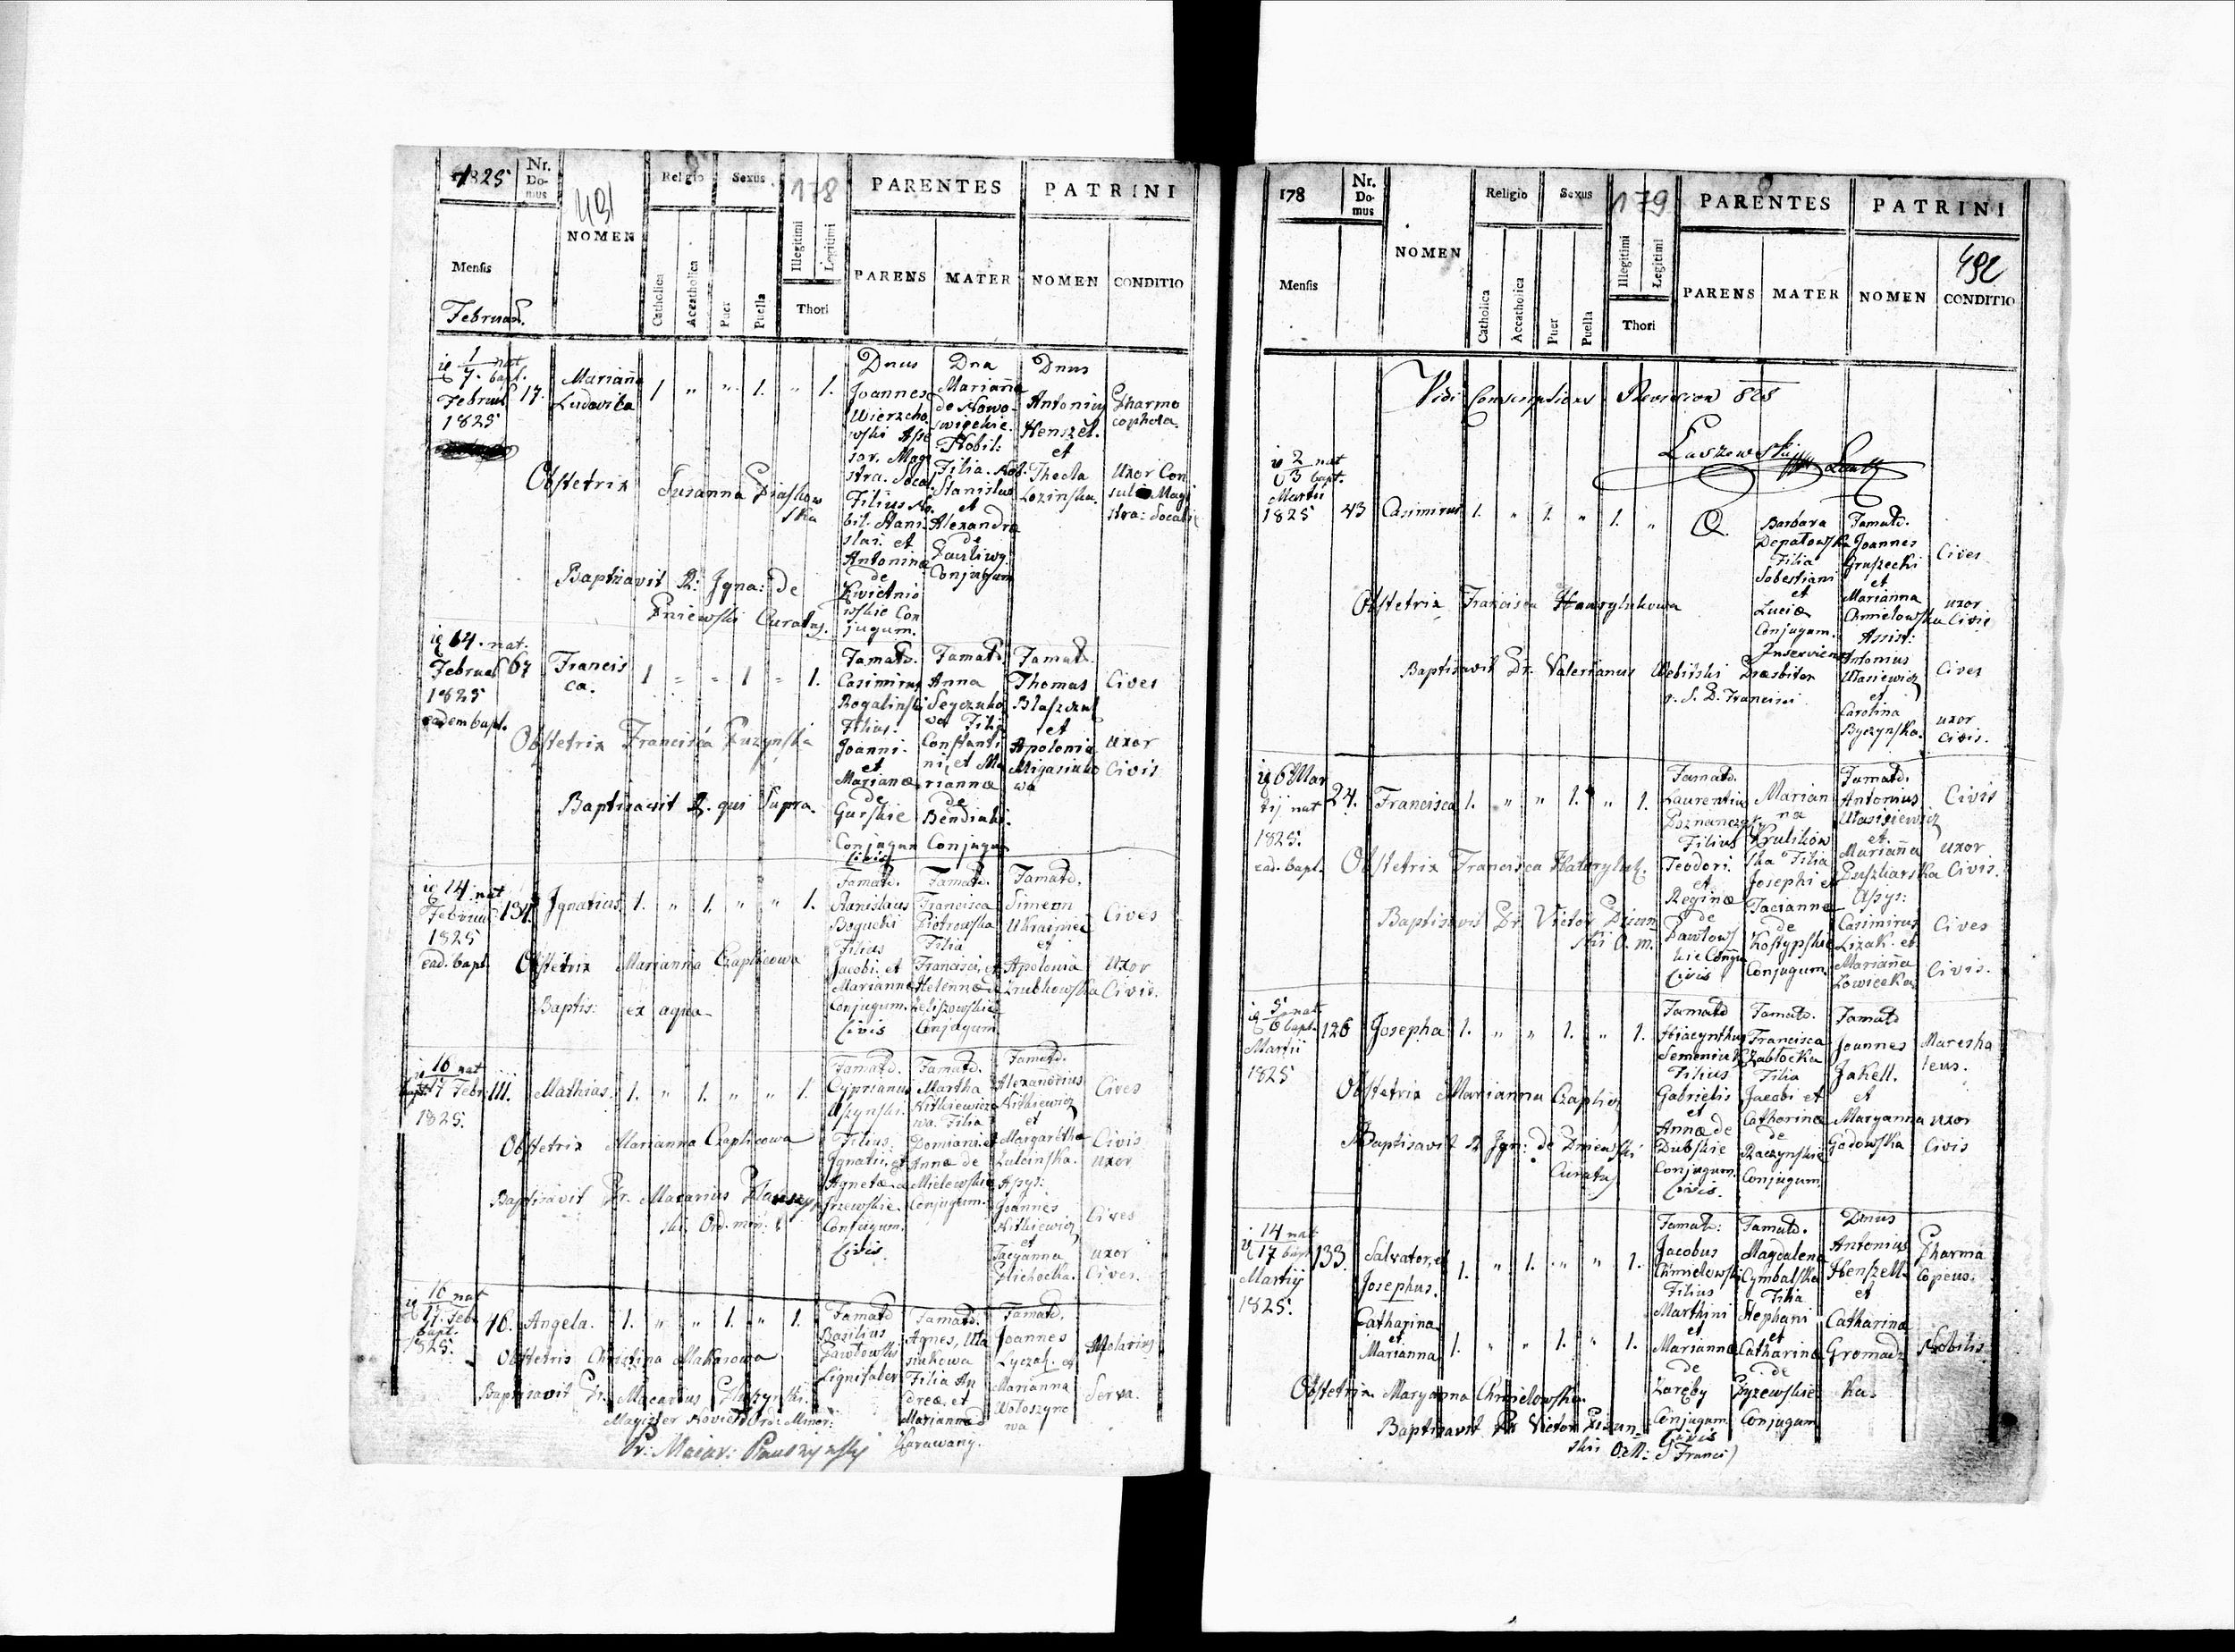 1825 Nr. Do- mus
491
NOMEN
Religio Sexus 178
Catholica Accatholica Puer Puella Illegitimi Legitimi
Thori
PARENTES PATRINI
PARENS MATER NOMEN CONDITIO
Mensis
Februar.
1 nat
7. bapt.
Februar
1825
17.
Marianna
Ludovica
1 " " 1. " 1.
Dnus
Joannes
Wierzcho
wski Asse
sor. Magi
stra. Socal.
Filius No.
bil. Stani
slai. et
Antoninæ
de
Kwietnio
wskie Con
jugum.
Dna
Marianna
de Nowo-
Nobil:
Filia. Nob.
Stanislai
et
Alexandra
de
Conjugum
Dnus
Antonius
Henszel.
et
Thecla
Lozinska.
Pharmo
cophola.
Uxor Con
sulis Magi
stra: Socalie
Obstetrix Susanna Piaskow
ska
Baptizavit R: Igna: de
Pniewski Curatus.
14. nat.
Februar
1825
eadem bapt.
67
Francis
ca.
1 " " 1 " 1.
Famatd.
Casimirus
Rogalinski
Filius.
Joanni.
et
Marianæ
de
Gurskie
Conjugum
Civis
Famatd.
Anna
Filia
Constanti
ni, et Ma
riannæ
de
Conjugum
Famatd.
Thomas
Blaszczuk
et
Apolonia
Migasiuko
wa
Cives
Uxor
Civis
Obstetrix Francisca Puzynska
Baptisavit R. qui Supra.
14 nat
Februar
1825
ead. bapt.
134.
Ignatius.
1. " 1. " " 1.
Famatd.
Stanislaus
Bogucki
Filius
Jacobi. et
Mariannæ
Conjugum.
Civis
Famatd.
Francisca
Piotrowska
Filia
Francisci, et
Helennæ de
Conjugum
Famatd.
Simeon
Ukrainiec
et
Apolonia
Zrubkowska
Cives
Uxor
Civis.
Obstetrix Marianna Czaplicowa
Baptis: ex aqua
16 nat
bapt. 17 Febr.
1825.
111.
Mathias.
1. " 1. " " 1.
Famatd.
Cyprianus
Filius.
Ignatii, et
Agnetæ
Conjugum.
Civis.
Famatd.
Martha
Nitkiewiczo
wa. Filia
Domiani. et
Annæ de
Mielewskie
Conjugum.
Famatd.
Alexandrius
Nitkiewicz
et
Margaretha
Zulcinska.
Assys:
Joannes
Nitkiewicz
et
Tacyanna
Plichocka.
Cives
Civis
uxor
Cives
uxor
Cives.
Obstetrix Marianna Czaplicowa
Baptisavit Pr. Macarius
ski Ord. min:
16 nat
17. Feb.
bapt.
1825.
46.
Angela.
1. " " 1. " 1.
Famatd
Basilius
Pawlowski
Lignifaber
Famatd.
Agnes,
Filia An
dreæ. et
Mariannæ
Famatd.
Joannes
Lyczak. et
Marianna
Woloszyno
wa
Molarius
Serva.
Obstetrix Christina Makarowa
Baptisavit Pr. Macarius
Magister Ord: Minor:
178 Nr. Do- mus
NOMEN
Religio Sexus 179
Catholica Accatholica Puer Puella Illegitimi Legitimi
Thori
PARENTES PATRINI
492
PARENS MATER NOMEN CONDITIO
Mensis
2 nat
3 bapt.
Martii
1825
43
Casimirus
1. " 1. " 1. "
Barbara
Filia
Sobestiani
et
Luciæ
Conjugum.
Famatd.
Joannes
Gruszecki
et
Marianna
Chmielowska
Assist:
Antonius
Wlasiewicz
et
Carolina
Byczynska.
Cives
uxor
Civis
Cives
uxor
Civis.
Obstetrix Francisca Hawrylukowa
Baptisavit Pr. Valerianus Webitski Præsbiter
o. S. P. Francisci
6 Mar
tij nat
1825.
ead. bapt.
24.
Francisca
1. " " 1. " 1.
Famatd.
Laurentius
Filius
Teodori.
et
Reginæ
de
Pawlows
kie Conju
Civis
Marian
na
Krulikow
ska Filia
Josephi et
Tacianna
de
Kostypskie
Conjugum.
Famatd.
Antonius
et.
Marianna
Puszkarska
Assys:
Casimirus
Lizak. et
Marianna
Lowiecka.
Civis
uxor
Civis.
Cives
Civis.
Obstetrix Francisca Hawryluk.
Baptisavit Pr. Victor Dziun
ski O. m.
5 nat
6 bapt.
Martii
1825
126
Josepha
1. " " 1. " 1.
Famatd
Hiacynthus
Semeniuk
Filius
Gabrielis
et
Annæ de
Dubskie
Conjugum.
Civis.
Famatd.
Francisca
Zablocka
Filia
Jacobi et
Catharinæ
de
Raczynskie
Conjugum.
Famatd
Joannes
Jakell.
et
Maryanna
Gadowska
Maresha
leus.
uxor
Civis
Obstetrix Marianna Czaplic
Baptisavit R Ign: de Pniewski
Curatus
14 nat.
17 bapt
Martij
1825.
133.
Salvator, et
Josephus.
1. " 1. " " 1.
Catharina
et
Marianna
1. " " 1. " 1.
Famatd:
Jacobus
Chmielowski
Filius
Marthini
et
Mariannæ
de
Zaręby
Conjugum
Civis
Famatd.
Magdalena
Cymbalska
Filia
Stephani
et
Catharinæ
de
Conjugum
Dnus
Antonius
Henszell.
et
Catharina
Gromadz
ka.
Pharma
copeus.
Nobilis
Obstetrix Maryanna Chmielowska.
Baptisavit Pr Victor Dziun-
ski Ord: S Franci)